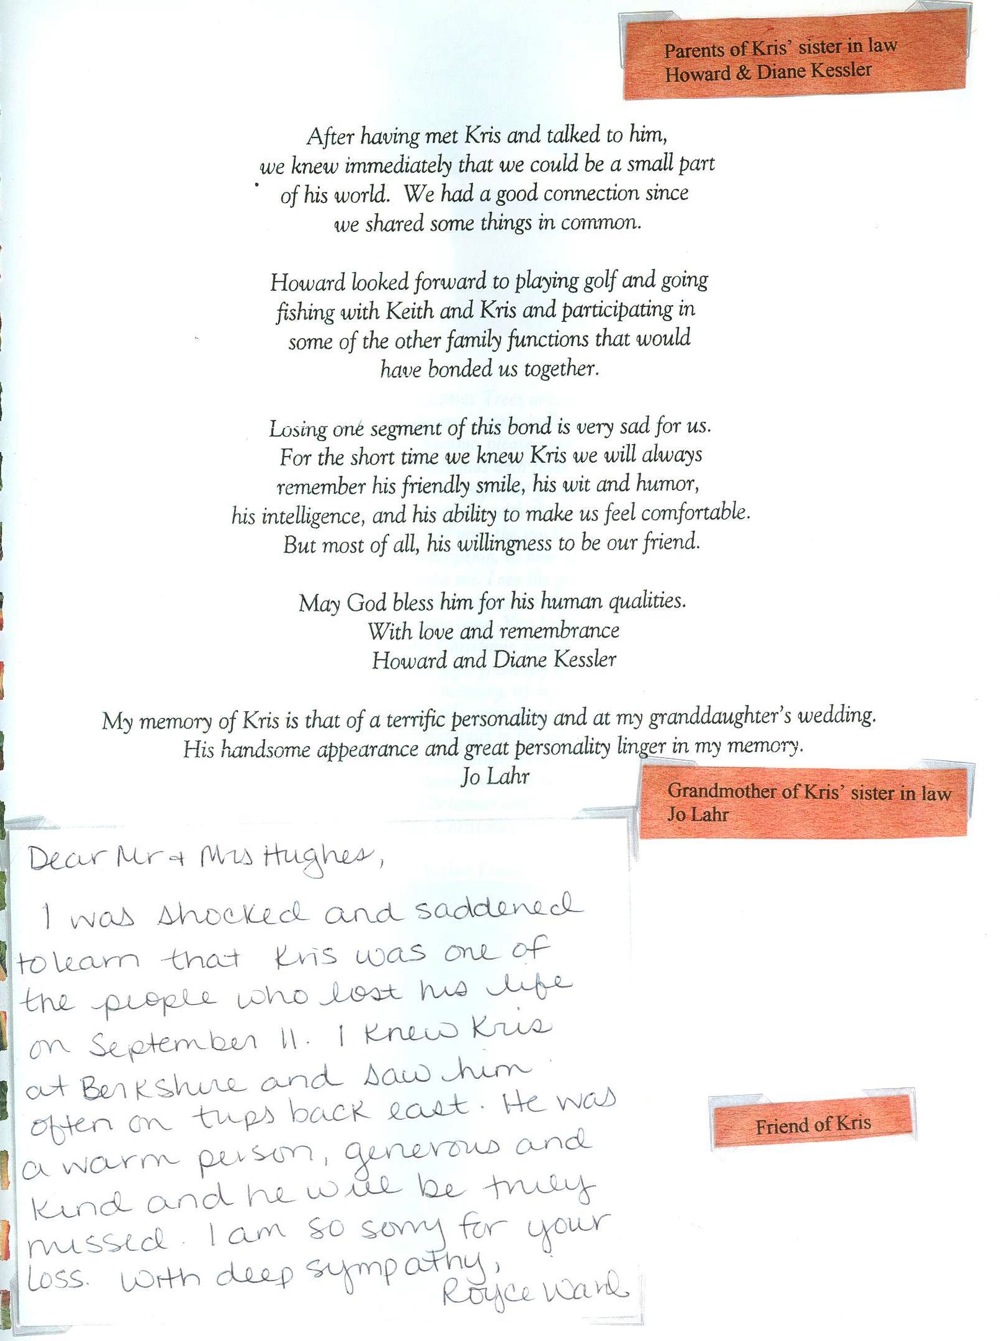 Parents of Kris' sister in law
Howard & Diane Kessler
After having met Kris and talked to him,
we knew immediately that we could be a small part
of his world. We had a good connection since
we shared some things in common.
Howard looked forward to playing golf and going
fishing with Keith and Kris and participating in
some of the other family functions that would
have bonded us together.
Losing one segment of this bond is very sad for us.
For the short time we knew Kris we will always
remember his friendly smile, his wit and humor,
his intelligence, and his ability to make us feel comfortable.
But most of all, his willingness to be our friend.
May God bless him for his human qualities.
With love and remembrance
Howard and Diane Kessler
My memory of Kris is that of a terrific personality and at my granddaughter's wedding.
His handsome appearance and great personality linger in my memory.
Jo Lahr
Grandmother of Kris' sister in law
Jo Lahr
Dear Mr + Mrs Hughes,
I was shocked and saddened
to learn that Kris was one of
the people who lost his life
on September 11. I knew Kris
at Berkshire and saw him
often on trips back east. He was
a warm person, generous and
kind and he will be truly
missed. I am so sorry for your
loss. With deep sympathy,
Royce
Friend of Kris